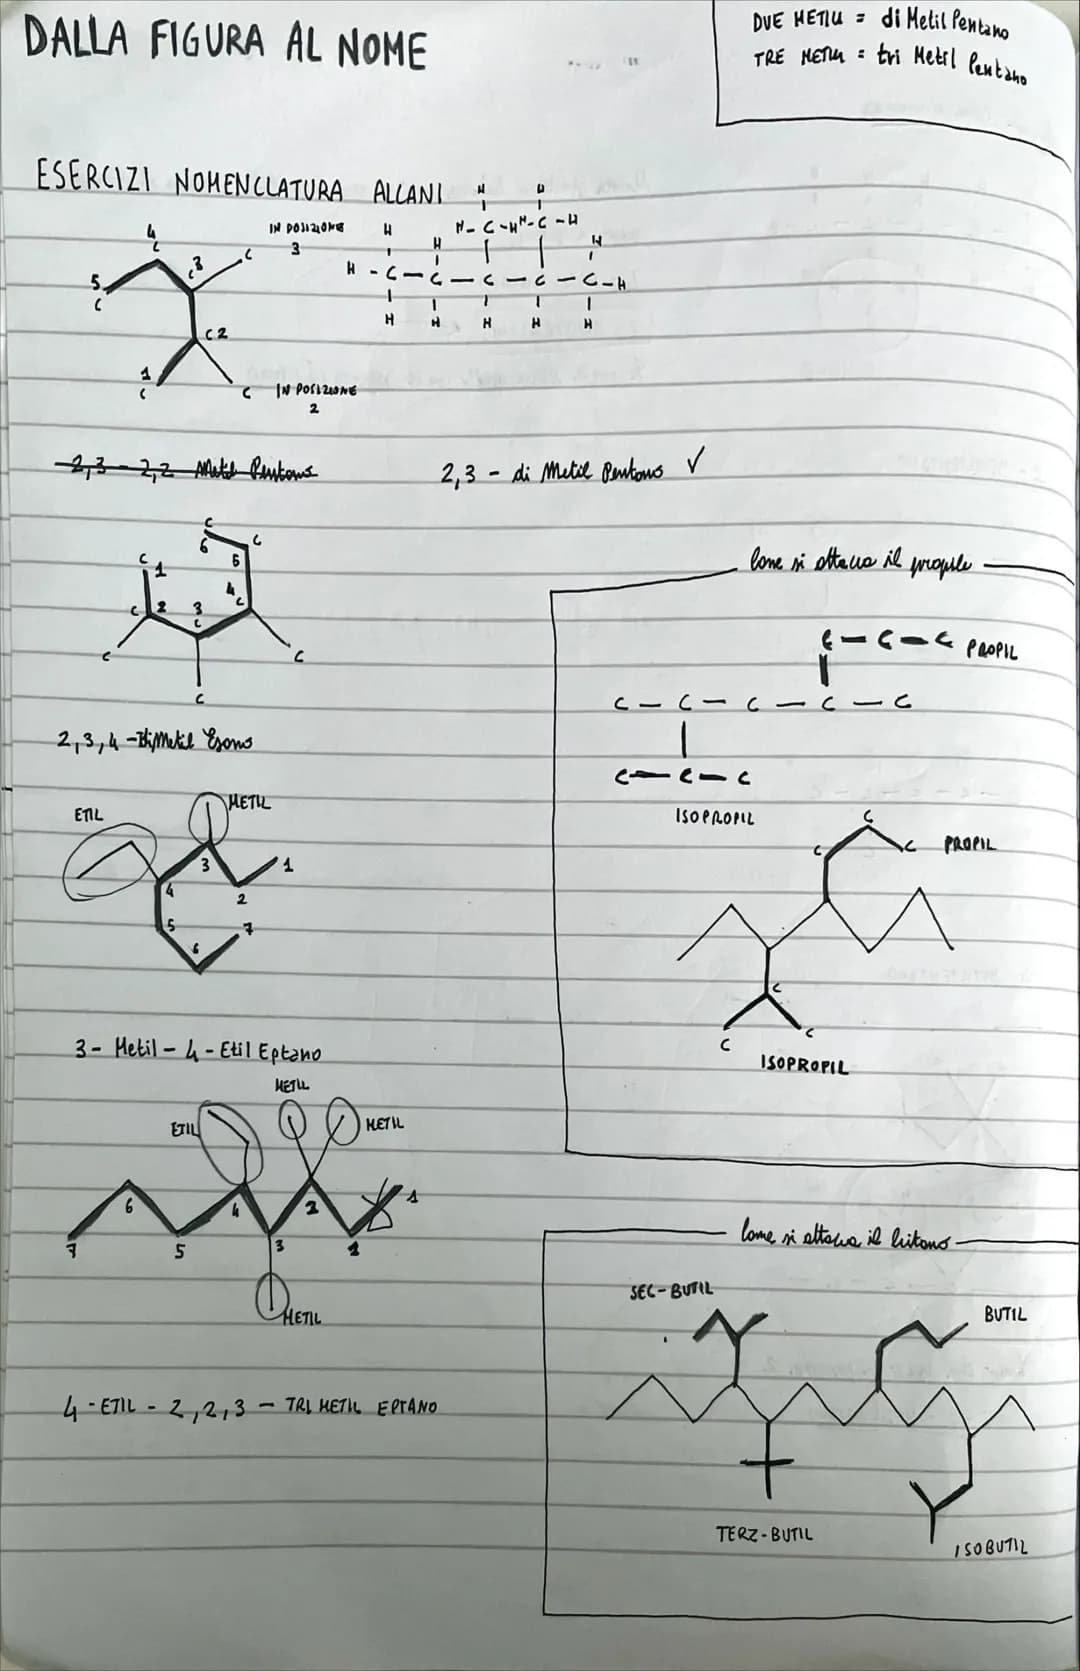 DALLA FIGURA AL NOME
DUE METILI = di Metil Pentano
TRE METILI = tri Metil Pentano
ESERCIZI NOMENCLATURA ALCANI
H H
4 IN POSIZIONE H H - C - H H - C - H
C 3 C 3 H H
5 H - C - C - C - C - C - H
C H H H H H
C 2
1
C C IN POSIZIONE
2
2,3 - 2,2 Metil Pentano 2,3 - di Metil Pentano ✓
C
6 C
C 1 5
4
C 2 3 C
C
C C
C
2,3,4 - triMetil Esano
ETIL METIL
3 1
4 2
5 7
6
3 - Metil - 4 - Etil Eptano
METIL
ETIL METIL
1
6 4 2
7 5 3 1
METIL
4 - ETIL - 2,2,3 - TRI METIL EPTANO
Come si attacca il propile
C - C - C PROPIL
C - C - C - C - C
C - C - C
ISOPROPIL
C
C C PROPIL
C
C C
ISOPROPIL
Come si attacca il butano
SEC-BUTIL
BUTIL
TERZ-BUTIL
ISOBUTIL